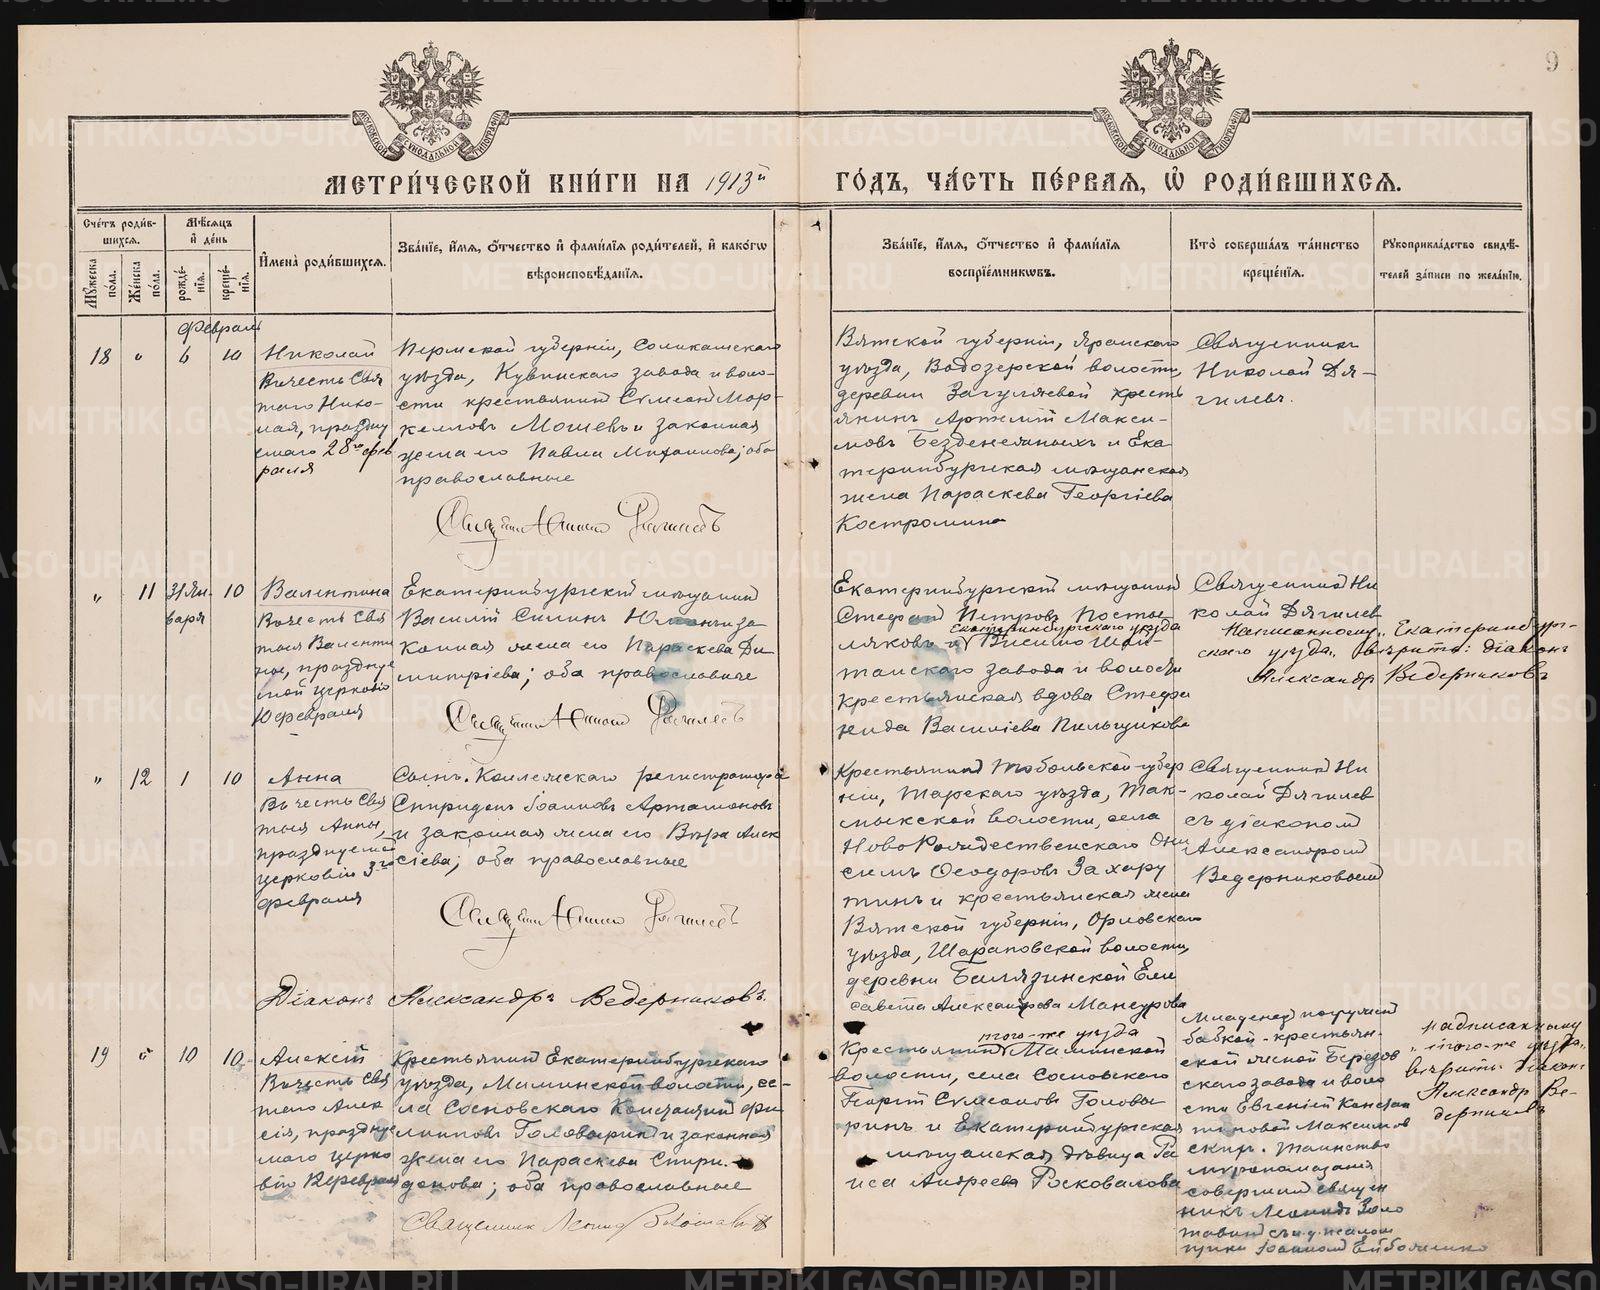 9
МОСКОВСКОЙ СѴНОДАЛЬНОЙ ТИПОГРАФІИ
МОСКОВСКОЙ СѴНОДАЛЬНОЙ ТИПОГРАФІИ
МЕТРИ́ЧЕСКОЙ КНИ́ГИ НА 1913й
ГО́ДЪ, ЧА́СТЬ ПЕ́РВАЯ, Ѡ҆ РОДИ́ВШИХСЯ.
Сче́тъ роди́в-
шихся.
Мꙋ́жеска по́ла.
Же́нска по́ла.
Мѣ́сяцъ
и҆ де́нь
рожде́-
нїя.
креще́-
нїя.
И҆мена̀ роди́вшихся.
Зва́нїе, и҆́мя, ѻ҆́тчество и҆ фами́лїя роди́телей, и҆ како́гѡ
вѣроисповѣ́данїя.
Зва́нїе, и҆́мя, ѻ҆́тчество и҆ фами́лїя
воспрїе́мникѡвъ.
Кто̀ соверша́лъ та́инство
креще́нїя.
Рꙋкоприкла́дство свидѣ́-
телей за́писи по жела́нїю.
Февраль
18 " 6 10
Николай
Въ честь Свя
таго Нико-
лая, праздну
емаго 28го фев
раля
Пермской губерніи, Соликамскаго
уѣзда, Кувинскаго завода и воло-
сти крестьянинъ Симеонъ Мар-
келловъ Мошевъ и законная
жена его Павла Михаилова; оба
православные
Священникъ Николай Дягилевъ
Вятской губерніи, Яранскаго
уѣзда, Водозерской волости,
деревни Загуляевой кресть
янинъ Артемій Макси-
мовъ Безденежныхъ и Ека
теринбургская мѣщанская
жена Параскева Георгіева
Костромина
Священникъ
Николай Дя-
гилевъ.
" 11 31 Ян-
варя 10
Валентина
Въ честь Свя
тыя Валенти
ны, праздну
мой церковію
10 февраля
Екатеринбургскій мѣщанинъ
Василій Силинъ и за
конная жена его Параскева Ди
митріева; оба православные
Священникъ Николай Дягилевъ
Екатеринбургскій мѣщанинъ
Стефанъ Петровъ Посты-
ляковъ и Екатеринбургскаго уѣзда Висимо Шай-
танскаго завода и волости
крестьянская вдова Стефа
нида Василіева Пильщикова
Священникъ Ни
колай Дягилев
Написанному „Екатеринбург-
скаго уѣзда„ вѣрить: діаконъ
Александръ Ведерниковъ
" 12 1 10
Анна
Въ честь Свя
тыя Анны,
празднуемой
церковію 3го
февраля
Сынъ Коллежскаго регистратора
Спиридонъ Іоанновъ Артамоновъ
и законная жена его Вѣра Алек
сіева; оба православные
Священникъ Николай Дягилевъ
Крестьянинъ Тобольской губер
ніи, Тарскаго уѣзда, Так-
мыкской волости, села
НовоРождественскаго Они
симъ Ѳеодоровъ Захару
тинъ и крестьянская жена
Вятской губерніи, Орловскаго
уѣзда, Шараповской волости,
деревни Елисавета Александрова Мансурова
Священникъ Ни
колай Дягилев
съ діакономъ
Александромъ
Ведерниковымъ
Діаконъ Александръ Ведерниковъ.
19 " 10 10
Алексій
Въ честь Свя
таго Алек
сія, праздну
емаго церко
вію 12 февраля
Крестьянинъ Екатеринбургскаго
уѣзда, Маминской волости, се-
ла Сосновскаго Константинъ Фи-
липповъ Головыринъ и законная
жена его Параскева Спири-
донова; оба православные
Священникъ Леонидъ
того-же уѣзда
Крестьянинъ Маминской
волости, села Сосновскаго
Георгій Симеоновъ Головы
ринъ и Екатеринбургская
мѣщанская дѣвица Та
иса Андреева Рѣковалова
Младенец погружен
бабкой - крестьян-
ской женой Березов
скаго завода и воло
сти Евгеніей Констан
тиновой Максимов
ских. Таинство
мѵропомазанія
совершилъ священ
никъ Леонидъ
Надписанному
„того-же уѣзда„
вѣрить: Діакон
Александр Ве-
дерниковъ